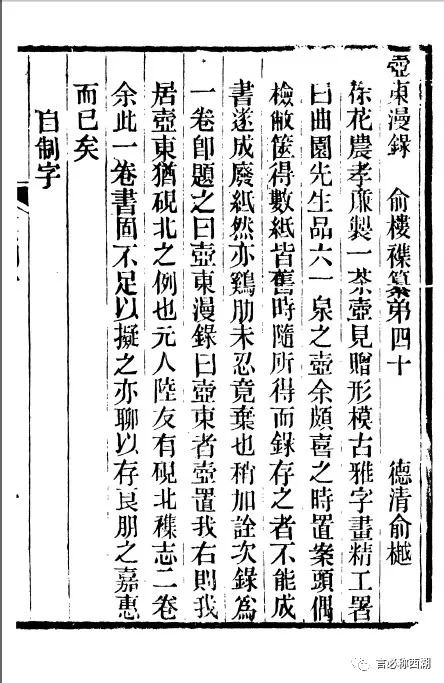 壺東漫錄　俞樓襍纂第四十　德清俞樾
徐花農孝廉製一茶壺見贈形模古雅字畫精工署
曰曲園先生品六一泉之壺余頗喜之時置案頭偶
檢敝篋得數紙皆舊時隨所得而錄存之者不能成
書遂成廢紙然亦鷄肋未忍竟棄也稍加詮次錄為
一卷卽題之曰壺東漫錄曰壺東者壺置我右則我
居壺東猶硯北之例也元人陸友有硯北襍志二卷
余此一卷書固不足以擬之亦聊以存良朋之嘉惠
而已矣
自制字
言必称西湖